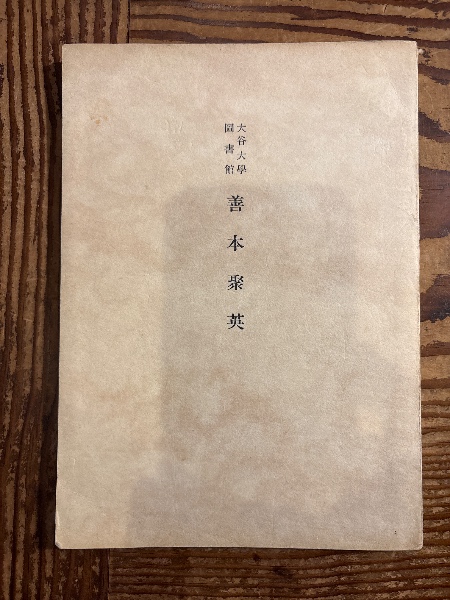 大谷大學
圖書館
善本聚英